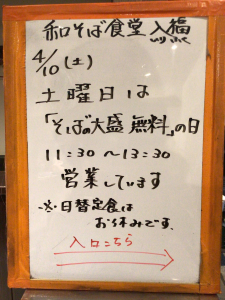 和そば食堂 入福
4/10(土)
土曜日は
「そばの大盛無料」の日
11:30~13:30
営業しています
※日替定食は
お休みです。
入口こちら